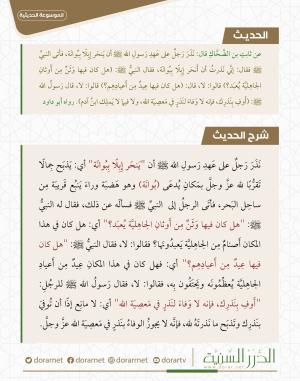 الموسوعة الحديثية
الحديث
عن ثابت بن الضحَّاكِ قال: نَذَرَ رَجُلٌ على عَهْدِ رَسولِ اللهِ ﷺ أن يَنحَرَ إبِلًا بِبُوانَةَ، فأتى النبيَّ
ﷺ فقال: إنِّي نَذَرتُ أن أنحَرَ إبِلًا بِبُوانَةَ، فقال النبيُّ ﷺ: (هل كان فيها وَثَنٌ مِن أوثانِ
الجاهِليَّةِ يُعبَدُ؟) قالوا: لا، قال: (هل كان فيها عيدٌ مِن أعيادِهِم؟) قالوا: لا، قال رسول الله
ﷺ: (أوفِ بنَذرِكَ، فإنَّه لا وَفاءَ لنَذرٍ في مَعصِيَةِ الله، ولا فيما لا يَملِكُ ابنُ آدمَ). رواه أبو داود
شرح الحديث
نَذَرَ رَجُلٌ على عَهدِ رَسولِ اللهِ ﷺ أن "يَنحَرَ إبِلًا بِبُوانَةَ" أي: يَذبَحَ جِمالًا
تَقرُّبًا للهِ عزَّ وجلَّ بمَكانٍ يُدعَى (بُوانَةَ) وهو هَضبَةٌ وراءَ يَنبُعَ قَريبَةٌ مِن
ساحِلِ البَحرِ، فأتى الرجُلُ إلى النبيِّ ﷺ فسألَه عن ذلك، فقال له النبيُّ
ﷺ: "هل كان فيها وَثَنٌ مِن أوثانِ الجاهليَّةِ يُعبَدُ؟" أي: هل كان في هذا
المكانِ أصنامٌ مِن الجاهليَّةِ يَعبُدونَها؟ فقالوا: لا، فقال النبيُّ ﷺ: "هل كان
فيها عيدٌ مِن أعيادِهِم؟" أي: فهل كان في هذا المكانِ عيدٌ مِن أعيادِ
الجاهليَّةِ يُعظِّمونَه ويَحتَفونَ به، فقالوا: لا، فقال رسولُ اللهِ ﷺ للرجُلِ:
"أوفِ بنَذرِكَ، فإنَّه لا وَفاءَ لنَذرٍ في مَعصِيَةِ اللهِ" أي: لا مانِعَ إذًا أن تُوفِيَ
بنَذرِكَ وتَذبَحَ ما نَذَرتَه لله، فإنَّه لا يجوزُ الوَفاءُ بنَذرٍ في مَعصِيَةِ اللهِ عزَّ وجلَّ.
الدرر السنية
www.dorar.net
dorarnet
dorarnet
dorarnet
dorartv